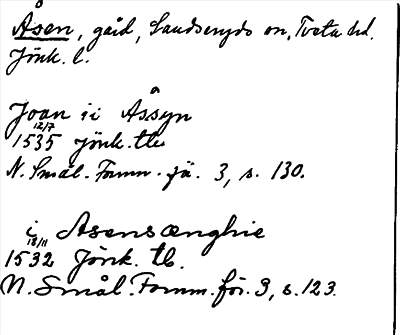 Åsen, gård, Sandseryds sn, Tveta hd.
Jönk. l.
Joan ii Åssyn
12/7
1535 Jönk. tb.
N. Smål. Fornm. fö. 3, s. 130.
i Asensænghie
18/11
1532 Jönk. tb.
N. Smål. Fornm. för. 3, s. 123.